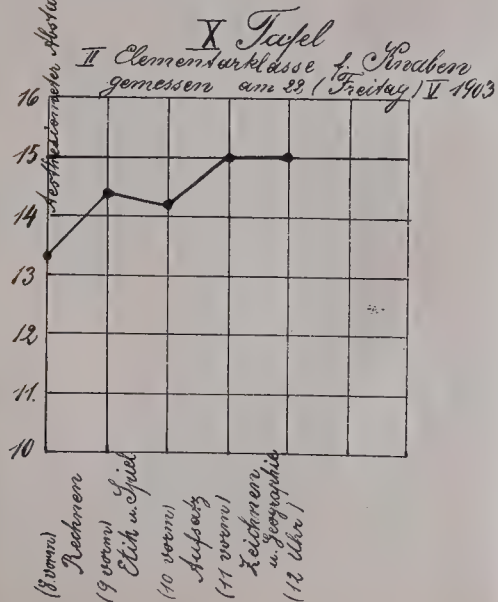 X Tafel
II Elementarklasse f. Knaben
gemessen am 22 (Freitag) V 1903
Aesthesiometer Abstu
16
15
14
13
12
11.
10
(8 vorm)
Rechnen
(9 vorm)
Etik u. Spiel
(10 vorm)
Aufsatz
(11 vorm)
Zeichnen
u. Geographie
(12 Uhr)